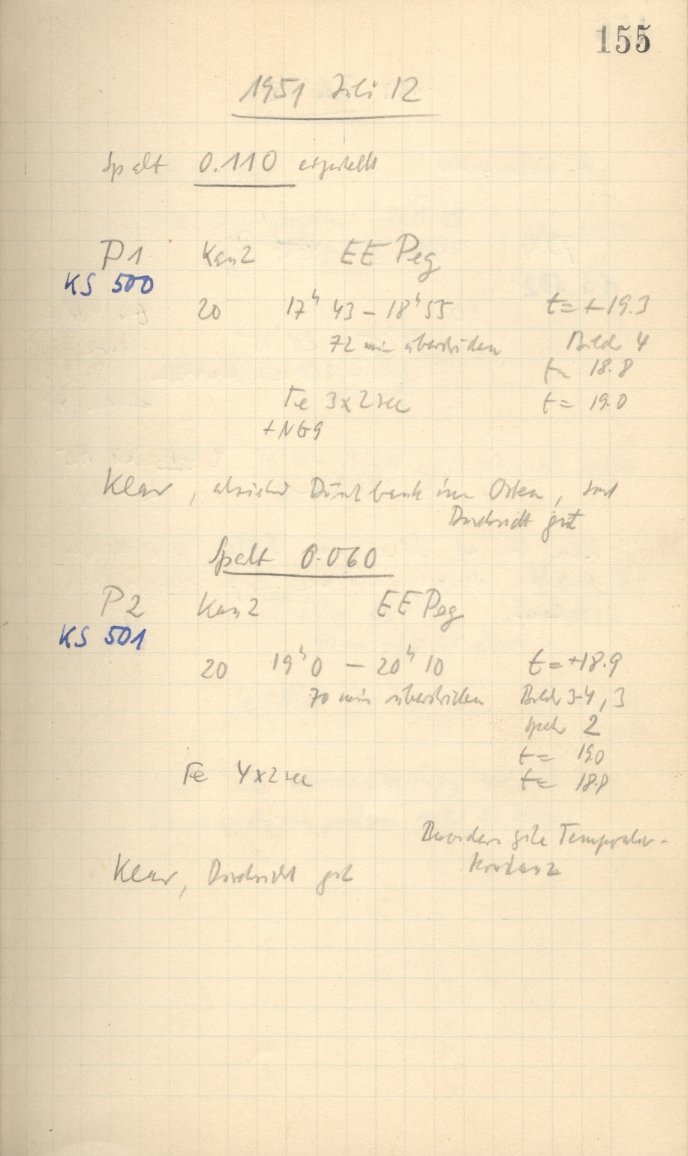 155
1951 Juli 12
Spalt 0.110 eingestellt
P1 Kam2 EE Peg
KS 500
20 17ʰ 43 – 18ʰ 55 t = +19.3
72 min Bild 4
t = 18.8
Fe 3x2sec t = 19.0
+NG9
Klar, Dunstbank im Osten, sonst
Durchsicht gut
Spalt 0.060
P2 Kam2 EE Peg
KS 501
20 19ʰ 0 – 20ʰ 10 t = +18.9
70 min Bild 3-4, 3
2
t = 19.0
Fe 4x2sec t = 18.8
Besonders gute Temperatur-
Klar, Durchsicht gut konstanz